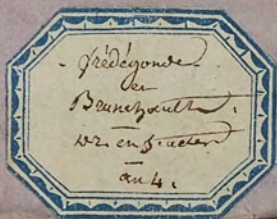 Frédégonde
et
Brunehault.
en 5. actes
an 4.